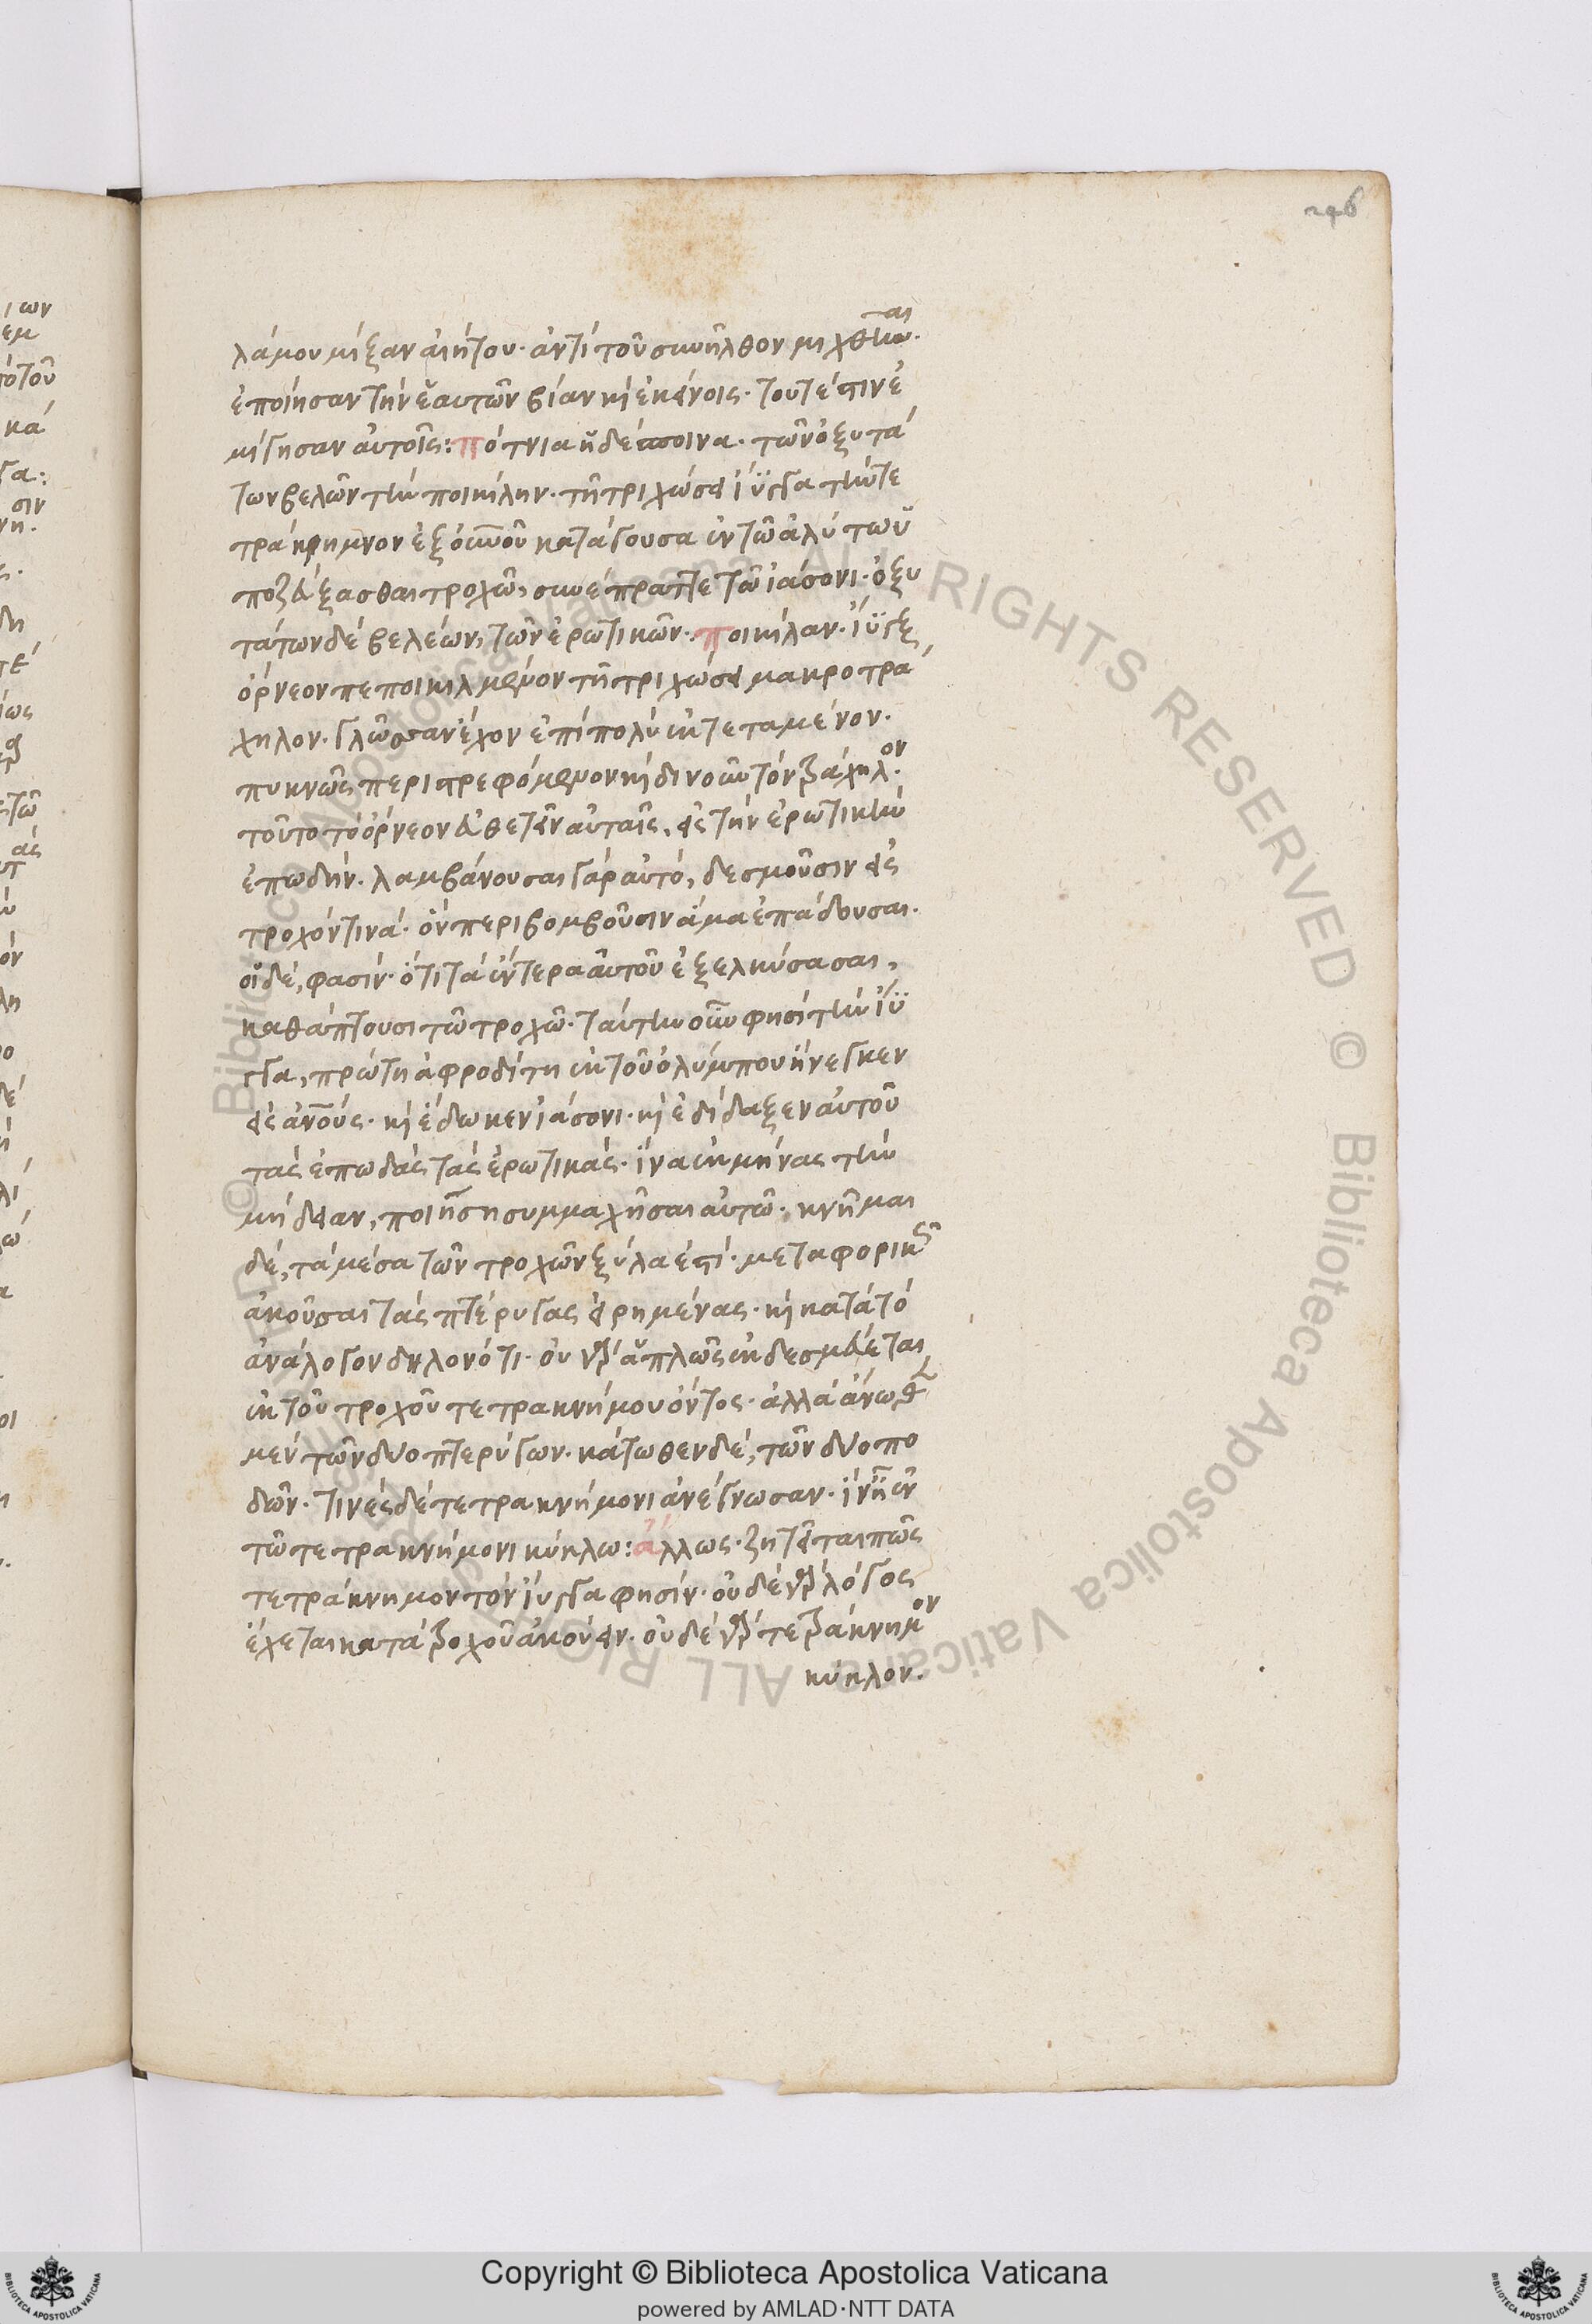 246
λάμου μίξαν αἰήτου· ἀντὶ τοῦ συνῆλθον μιχθῆναι·
ἐποίησαν τὴν ἑαυτῶν βίαν κἠ ἐκείνοις· τουτέστιν ἐ
μίγησαν αὐτοῖς: πότνια ἡ δέσποινα· τῶν ὀξυτά
των βελῶν τὴν ποικίλην· τῆ τριχώσει ἴϋγγα τὴν τε
τράκνημνον ἐξ οὐνοῦ κατάγουσα ἐν τῶ ἀλύτω ὑ
ποζεύξασθαι τροχῶ, συνέπραττε τῶ ἰάσονι· ὀξυ
τάτων δὲ βελέων, τῶν ἐρωτικῶν· ποικίλαν· ἴϋγξ
ὄρνεον πεποικιλμένον τῆ τριχώσει μακροτρά
χηλον· γλῶσσαν ἔχον ἐπὶ πολὺ ἐκτεταμένον·
πυκνῶς περιστρεφόμενον κὶ δινοῦν τὸν τράχηλον·
τοῦτο τὸ ὄρνεον εὔθετεῖν αὐταῖς, εἰς τὴν ἐρωτικὴν
ἐπωδὴν· λαμβάνουσαι γὰρ αὐτὸ, δεσμοῦσιν εἰς
τροχόν τινά· ὃν περιβομβοῦσιν ἅμα ἐπάδουσαι·
οἱ δέ, φασὶν· ὅτι τὰ ἔντερα αὐτοῦ ἐξελκύσασαι,
καθάπτουσι τῶ τροχῶ· ταύτην οὖν φησὶ τὴν ἴϋ
γγα, πρώτη ἀφροδίτη ἐκ τοῦ ὀλύμπου ἤνεγκεν
εἰς ἀνους· κὶ ἔδωκεν ἰάσονι· κὶ ἐδίδαξεν αὐτοῦ
τὰς ἐπωδὰς τὰς ἐρωτικὰς· ἵνα ἐκμήνας τὴν
μήδειαν, ποιήση συμμαχῆσαι αὐτῶ· κνῆμαι
δὲ, τὰ μέσα τῶν τροχῶν ξύλα ἐστὶ· μεταφορικῶς
ἀκοῦσαι τὰς πτέρυγας εἰρημένας· κὶ κατὰ τὸ
ἀνάλογον δηλονότι· οὐ γὰρ ἁπλῶς ἐκδεσμεύεται
ἐκ τοῦ τροχοῦ τετρακνήμου ὄντος· ἀλλὰ ἄνωθεν
μὲν τῶν δυο πτερύγων· κάτωθεν δὲ, τῶν δυο πο
δῶν· τινὲς δὲ τετρακνήμονι ἀνέγνωσαν· ἵν ἦ ἐν
τῶ τετρακνήμονι κύκλω: ἄλλως· ζητεῖται πῶς
τετράκνημον τὸν ἴυγγα φησὶν· οὐδὲ γὰρ λόγος
ἔχεται κατὰ τροχοῦ ἀκούειν· οὐδὲ γὰρ τετράκνημον
κύκλον·
Copyright © Biblioteca Apostolica Vaticana
powered by AMLAD·NTT DATA